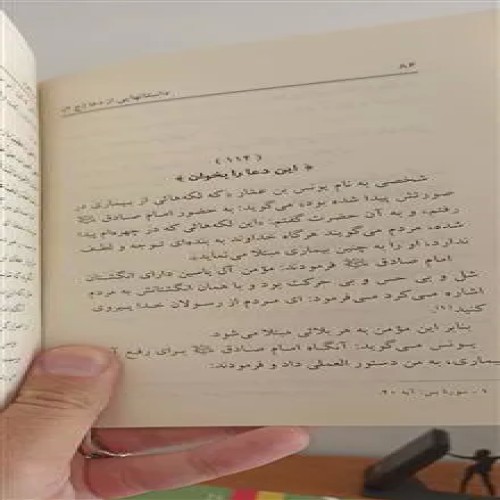 ۸۴
داستانهایی از دعا (ج ۲)
(۱۱۴)
﴿ این دعا را بخوان ﴾
شخصی به نام یونس بن عمار «که لکه‌هائی از بیماری در
صورتش پیدا شده بود» می‌گوید: به حضور امام صادق ﷺ
رفتم، و به آن حضرت گفتم: «این لکه‌هائی که در چهره‌ام پیدا
شده، مردم می‌گویند هرگاه خداوند به بنده‌ای توجه و لطف
ندارد، او را به چنین بیماری مبتلا می‌نماید».
امام صادق فرمودند: مؤمن آل یاسین دارای انگشتان
شل و بی حس و بی حرکت بود و با همان انگشتانش به مردم
اشاره می‌کرد می‌فرمود: ای مردم از رسولان خدا پیروی
کنید(۱).
بنابر این مؤمن به هر بلائی مبتلا می‌شود.
یونس می‌گوید: آنگاه امام صادق برای رفع
بیماری، به من دستور العملی داد و فرمودند:
۱ - سورهٔ یس: آیه ۲۰.